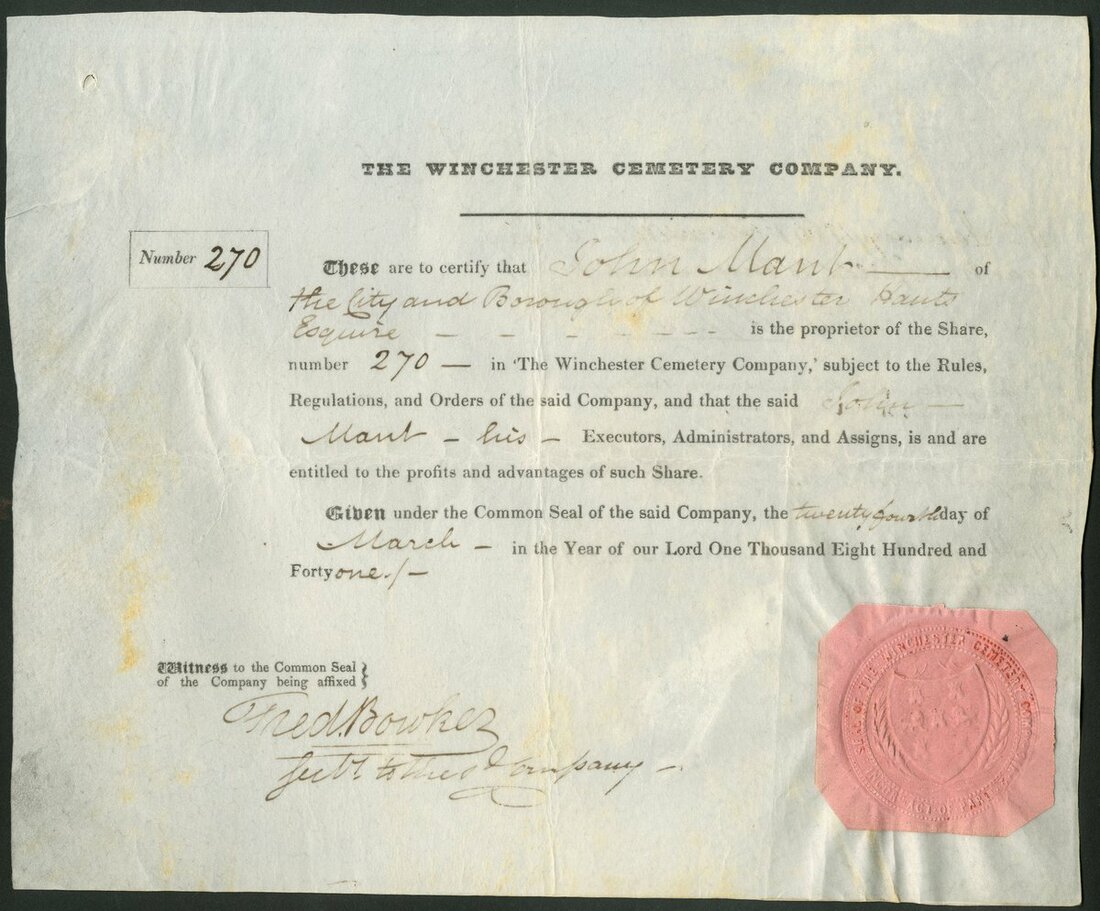 THE WINCHESTER CEMETERY COMPANY.
Number 270
These are to certify that John Mant — of
the City and Borough of Winchester Hants
Esquire - - - - - - - is the proprietor of the Share,
number 270 — in 'The Winchester Cemetery Company,' subject to the Rules,
Regulations, and Orders of the said Company, and that the said John —
Mant — his — Executors, Administrators, and Assigns, is and are
entitled to the profits and advantages of such Share.
Given under the Common Seal of the said Company, the twenty fourth day of
March — in the Year of our Lord One Thousand Eight Hundred and
Forty one./—
Witness to the Common Seal
of the Company being affixed
Fred. Bowker
to the sd Company —
SEAL OF THE WINCHESTER CEMETERY COMPANY
ACT OF